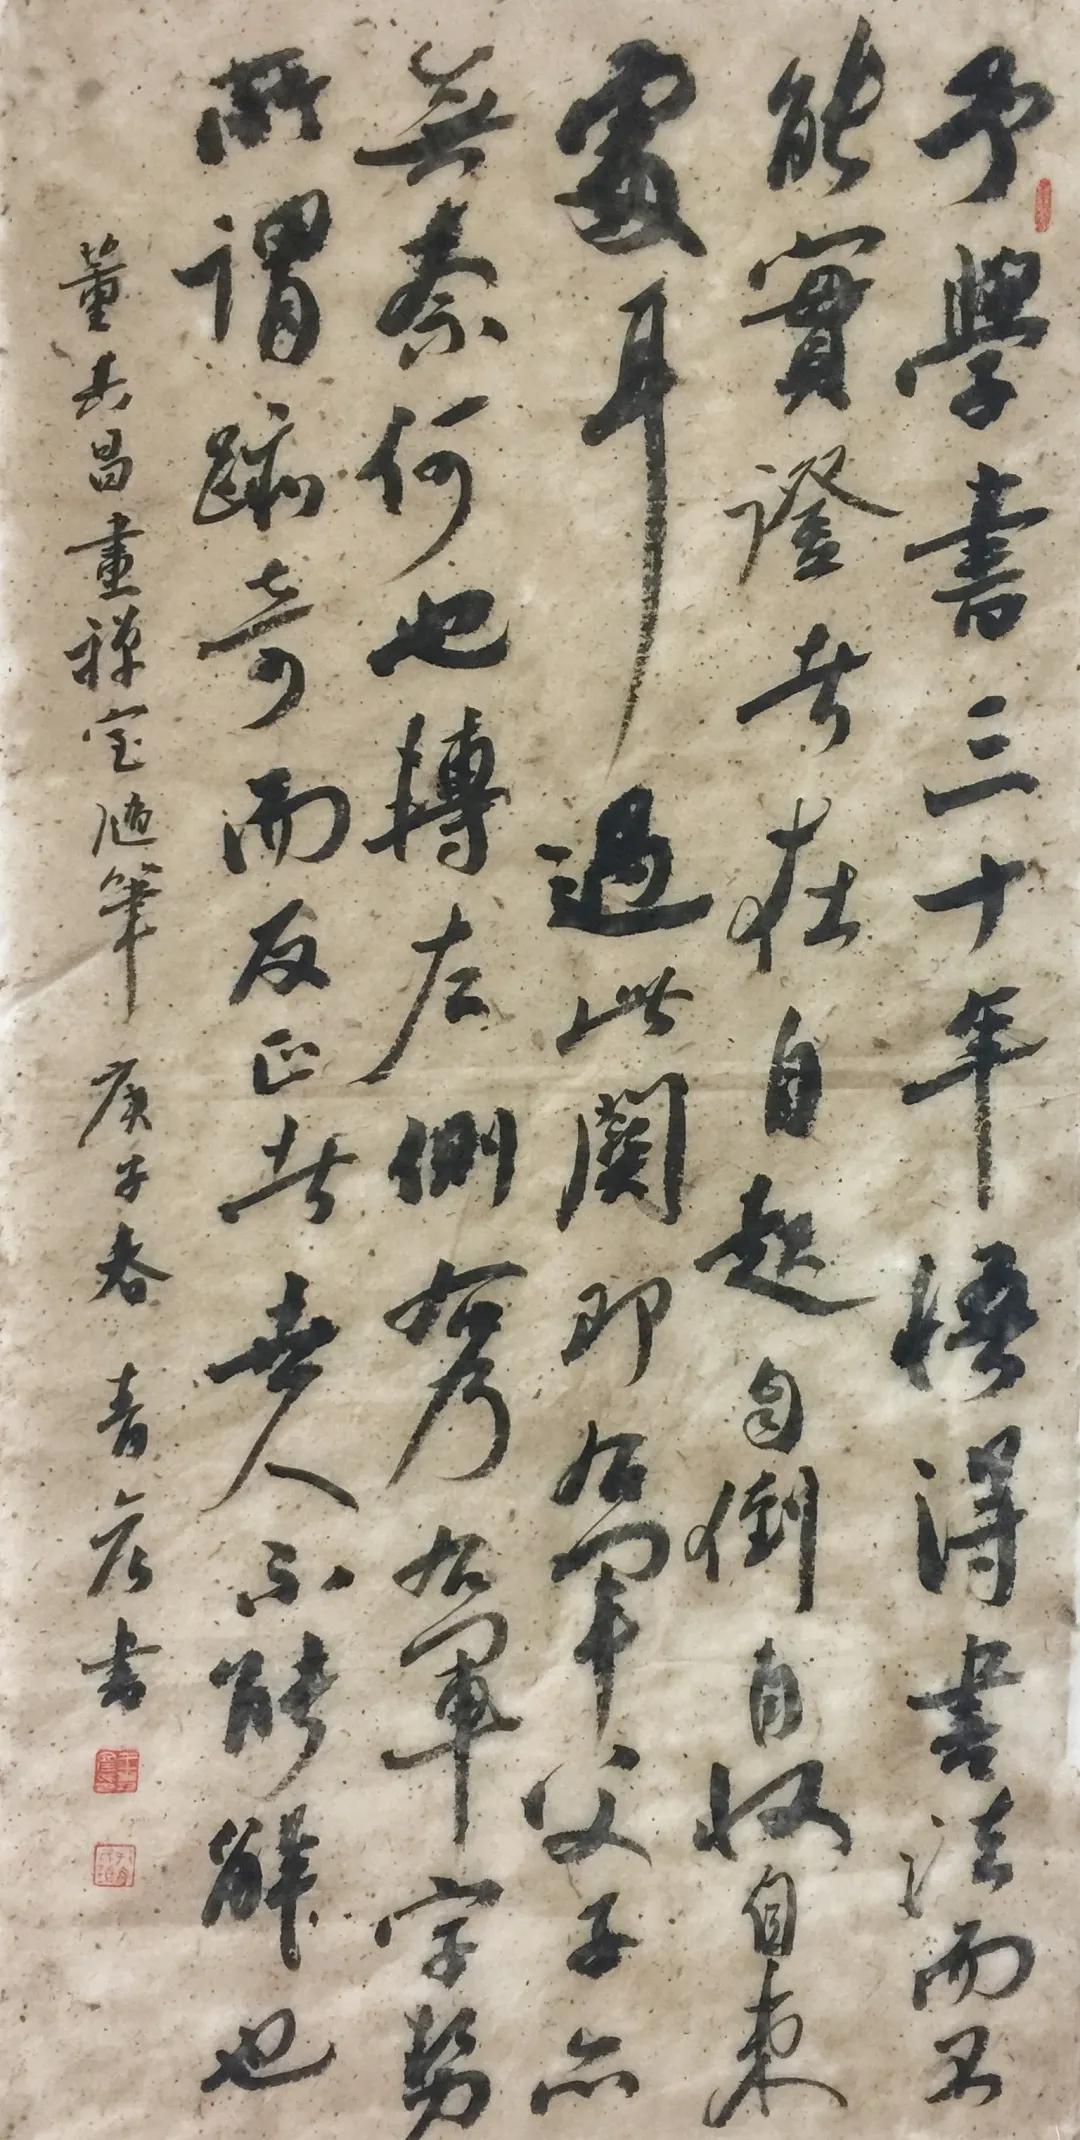 予學書三十年悟得書法而不
能實證者在自起自倒自收自束
處耳過此關即右軍父子亦
無奈何也轉左側右乃右軍字勢
所謂跡奇而反正者世人不能解也
董其昌畫禪室隨筆 庚子春 青彦書